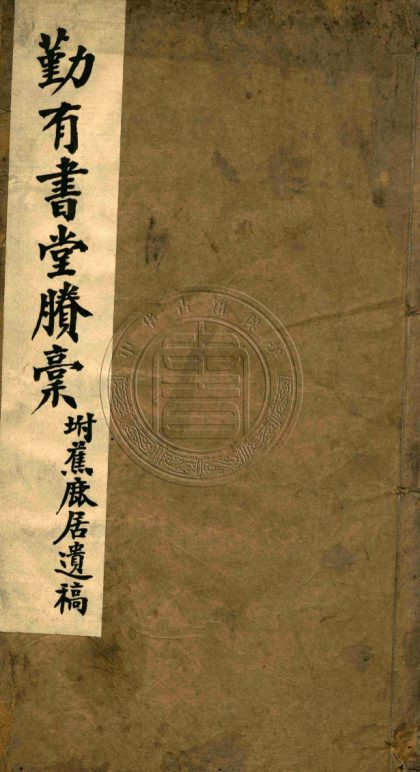 勤有書堂賸稾
坿蕉鹿居遺稿